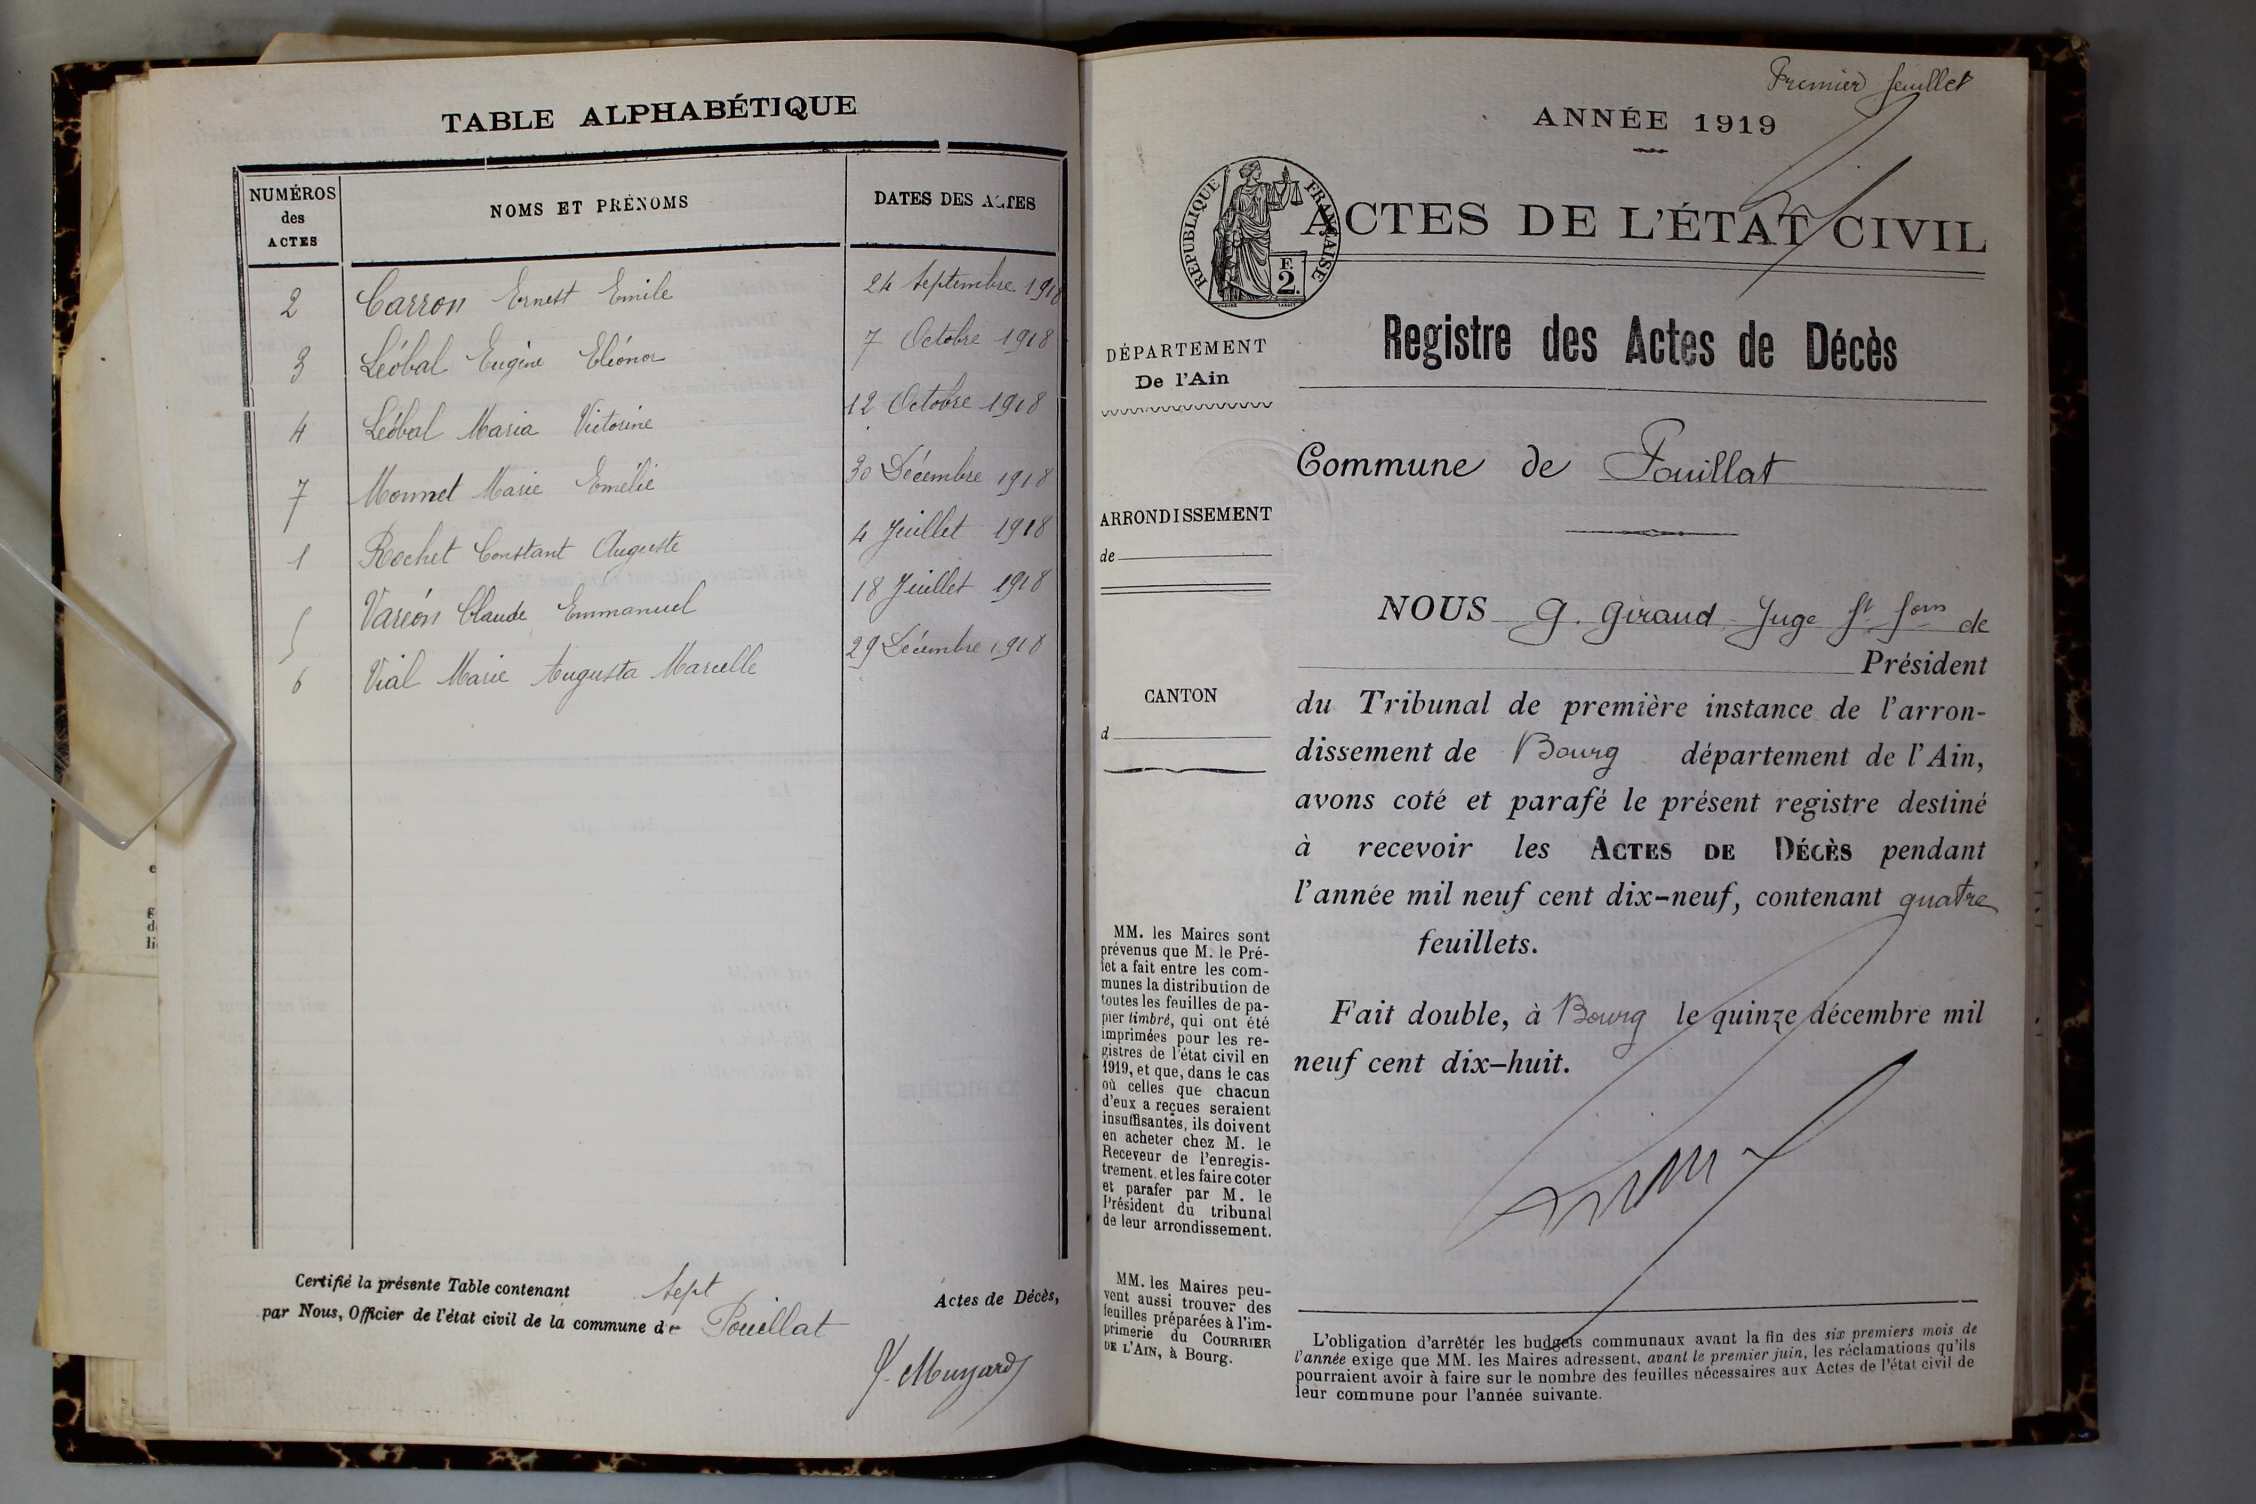 TABLE ALPHABÉTIQUE
NUMÉROS des ACTES
NOMS ET PRÉNOMS
DATES DES ACTES
2 Carron Ernest Emile 24 Septembre 1918
3 Léobal Eugène Eléonor 7 Octobre 1918
4 Léobal Maria Victorine 12 Octobre 1918
7 Monnet Marie Emélie 30 Décembre 1918
1 Rochet Constant Auguste 4 Juillet 1918
5 Varéon Claude Emmanuel 18 Juillet 1918
6 Vial Marie Augusta Marcelle 29 Décembre 1918
Certifié la présente Table contenant sept Actes de Décès,
par Nous, Officier de l'état civil de la commune de Pouillat
Premier feuillet
ANNÉE 1919
RÉPUBLIQUE FRANÇAISE
F.
2.
ACTES DE L'ÉTAT CIVIL
DÉPARTEMENT
De l'Ain
ARRONDISSEMENT
de
CANTON
d
MM. les Maires sont
prévenus que M. le Pré-
fet a fait entre les com-
munes la distribution de
toutes les feuilles de pa-
pier timbré, qui ont été
imprimées pour les re-
gistres de l'état civil en
1919, et que, dans le cas
où celles que chacun
d'eux a reçues seraient
insuffisantes, ils doivent
en acheter chez M. le
Receveur de l'enregis-
trement, et les faire coter
et parafer par M. le
Président du tribunal
de leur arrondissement.
MM. les Maires peu-
vent aussi trouver des
feuilles préparées à l'im-
primerie du COURRIER
DE L'AIN, à Bourg.
Registre des Actes de Décès
Commune de Pouillat
NOUS G. Giraud Juge de
Président
du Tribunal de première instance de l'arron-
dissement de Bourg département de l'Ain,
avons coté et parafé le présent registre destiné
à recevoir les ACTES DE DÉCÈS pendant
l'année mil neuf cent dix-neuf, contenant quatre
feuillets.
Fait double, à Bourg le quinze décembre mil
neuf cent dix-huit.
L'obligation d'arrêter les budgets communaux avant la fin des six premiers mois de
l'année exige que MM. les Maires adressent, avant le premier juin, les réclamations qu'ils
pourraient avoir à faire sur le nombre des feuilles nécessaires aux Actes de l'état civil de
leur commune pour l'année suivante.